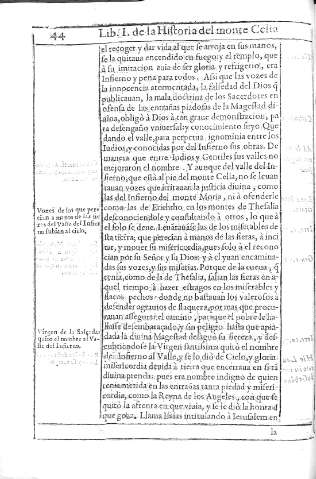 44
Lib. I. de la Historia del monte Celia
el recoger, y dar vida al que se arroja en sus manos,
se la quitaua encendido en fuego; y el templo, que
à su imitacion auia de ser gloria, y refrigerio, era
Infierno y pena para todos. Assi que las vozes de
la innocencia atormentada, la falsedad del Dios q̃
publicauan, la mala doctrina de los Sacerdotes en
ofensa de las entrañas piadosas de la Magestad di-
uina, obligò à Dios à tan graue demonstracion, pa
ra desengaño vniuersal y conocimiento suyo. Que
dando el valle, para perpetua ignominia entre los
Iudios, y conocidas por del Infierno sus obras. De
manera que entre Iudios y Gentiles sus valles no
mejoraron el nombre. Y aunque del valle del In-
fierno, que està al pie del monte Celia, no se leuan
tauan vozes que irritauan la justicia diuina, como
las del Infierno del monte Moria, ni à ofenderle
como las de en los montes de Thesalia
desconociendole y consultando à otros, lo que à
el solo se deue. Leuātauāse las de los miserables de
esta tierra, que perecian à manos de las fieras, à inci
tar, y mouer su misericordia, pues solo à el recono
cian por su Señor y su Dios: y à el yuan encamina-
das sus vozes, y sus miserias. Porque de la cueua, q̃
tenia, como de la de Thesalia, salian las fieras en a-
quel tiempo, à hazer estragos en los miserables y
flacos pechos: donde no bastauan los valerosos à
defender agrauios de flaqueza, por mas que procu-
rauan assegurar el camino, para que el pobre le ha-
llasse desembaraçado, y sin peligro: hasta que apia-
dada la diuina Magestad de su fiereza, y des-
cubriendose la Virgen santissima quitò el nombre
de Infierno al Valle, y se lo diò de Cielo, y gloria
misericordia deuida à tierra que encerraua en si tā
diuina prenda: pues era nombre indigno de quien
tenia metida en las entrañas tanta piedad y miseri-
cordia, como la Reyna de los Angeles, con que se
quitò la afrenta en que viuia, y se le diò la honra de
que goza. Llama Isaias intitulando à Ierusalem en
la
Vozes de los que pere
cian a manos de las fie
ras del Valle del Infier
no subian al cielo.
Virgen de la Salceda
quitò el nombre al Va
lle del Infierno.